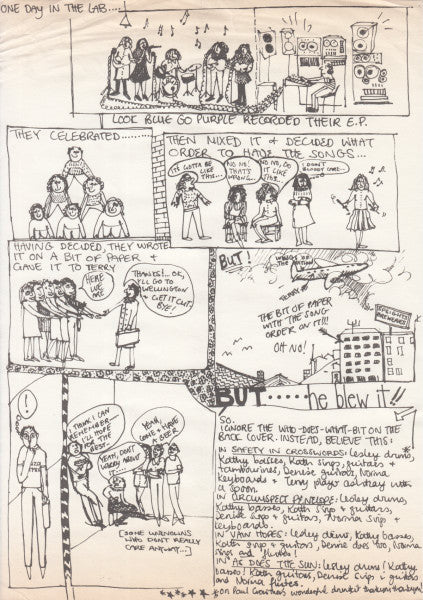 ONE DAY IN THE LAB....
LOOK BLUE GO PURPLE RECORDED THEIR E.P.
THEY CELEBRATED..........
THEN MIXED IT + DECIDED WHAT
ORDER TO HAVE THE SONGS...
ITS GOTTA BE
LIKE
THIS...
NO NO!
THAT'S
WRONG...
NO NO, DO
IT LIKE
THIS
I DON'T
BLOODY CARE..
HAVING DECIDED, THEY WROTE
IT ON A BIT OF PAPER +
GAVE IT TO TERRY
HERE
WE
ARE
THANKS!... OK,
I'LL GO TO
WELLINGTON
+ GET IT CUT
BYE!
BUT!
WINGS OF
THE NATION
THE BIT OF PAPER
WITH THE SONG
ORDER ON IT!!!
OH NO!
BUT.....he blew it!!
!
THINK I CAN
REMEMBER...
I'LL HOPE
THE
BEST..
YEAH, DON'T
WORRY ABOUT
IT....
YEAH,
COME + HAVE
A BEER
[SOME
WHO DON'T REALLY
CARE ANYWAY...]
SO.
IGNORE THE WHO-DOES-WHAT-BIT ON THE
BACK COVER. INSTEAD, BELIEVE THIS:
IN SAFETY IN CROSSWORDS: Lesley drums,
Kathy basses, Kath sings, guitars +
tambourines, Denise guitars, Norma
keyboards + Terry plays ashtray with
a spoon.
IN CIRCUMSPECT PENELOPE: Lesley drums,
Kathy basses, Kath sings + guitars,
Denise sings + guitars, Norma sings +
keyboards.
IN VAIN HOPES: Lesley drums, Kathy basses,
Kath sings + guitars, Denise does too, Norma
sings and flutes!
IN AS DOES THE SUN: Lesley drums! Kathy
basses! Kath guitars, Denise sings + guitars
and Norma flutes.
on Paul wonderful drumkit